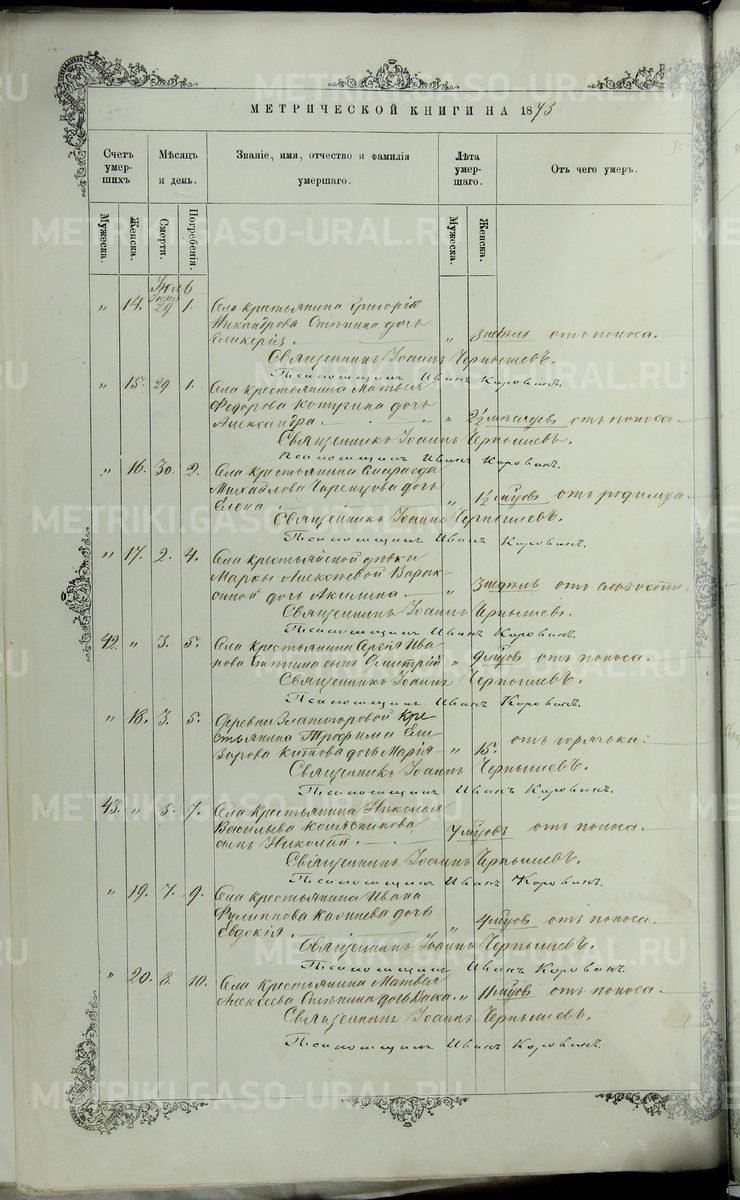 METRIKI.GASO-URAL.RU
МЕТРИЧЕСКОЙ КНИГИ НА 1873
Счетъ умершихъ
Мѣсяцъ и день.
Званіе, имя, отчество и фамилія умершаго.
Лѣта умершаго.
Отъ чего умеръ.
Мужеска.
Женска.
Смерти.
Погребенія.
Мужеска.
Женска.
Іюль
„ 14. 29 1. Села крестьянина Григорія
Никандрова Степина дочь
Гликерія. „ 3 недѣль отъ поноса.
Священникъ Іоаннъ Чернышевъ.
Псаломщикъ Иванъ Коровинъ.
„ 15. 29 1. Села крестьянина Матвея
Федорова дочь
Александра. „ 2½ мѣсяцевъ отъ поноса.
Священникъ Іоаннъ Чернышевъ.
Псаломщикъ Иванъ Коровинъ.
„ 16. 30. 2. Села крестьянина
Михайлова дочь
Елена. „ 1½ мцовъ отъ родимца.
Священникъ Іоаннъ Чернышевъ.
Псаломщикъ Иванъ Коровинъ.
„ 17. 2. 4. Села крестьянской дѣвки
Марѳы Алексѣевой
дочь Акилина. „ 3 недѣль отъ слабости.
Священникъ Іоаннъ Чернышевъ.
Псаломщикъ Иванъ Коровинъ.
42. „ 3. 5. Села крестьянина Ива-
нова Степина сынъ Димитрій „ 9 мцовъ отъ поноса.
Священникъ Іоаннъ Чернышевъ.
Псаломщикъ Иванъ Коровинъ.
„ 18. 3. 5. Деревни Златогоровой кре-
стьянина Трофима Ели-
зарова дочь Марія „ 15. отъ горячки.
Священникъ Іоаннъ Чернышевъ.
Псаломщикъ Иванъ Коровинъ.
43. „ 5. 7. Села крестьянина Николая
Васильева
сынъ Николай. 7 мцовъ отъ поноса.
Священникъ Іоаннъ Чернышевъ.
Псаломщикъ Иванъ Коровинъ.
„ 19. 7. 9. Села крестьянина Ивана
Филиппова дочь
Евдокія. „ 4 мцовъ отъ поноса.
Священникъ Іоаннъ Чернышевъ.
Псаломщикъ Иванъ Коровинъ.
„ 20. 8. 10. Села крестьянина Матвея
Алексеева Степина дочь Васса. „ 11 мцовъ отъ поноса.
Священникъ Іоаннъ Чернышевъ.
Псаломщикъ Иванъ Коровинъ.